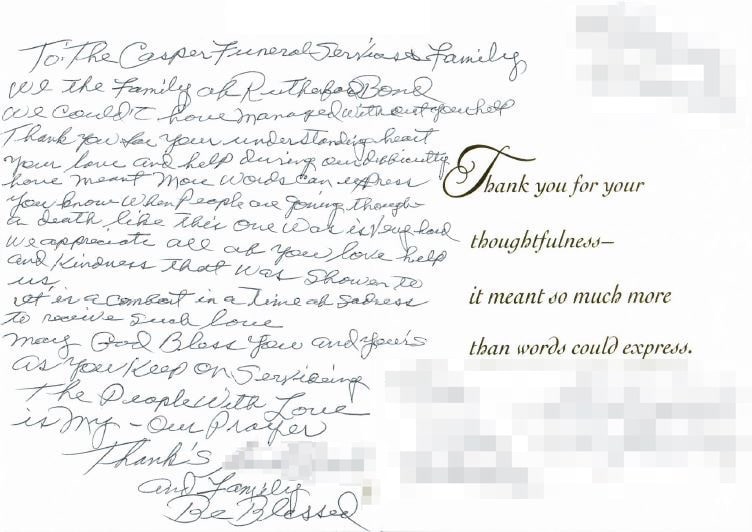 To: The Casper Funeral Services & Family
We the Family of Rutherford Bond
we Could't have managed with out you help
Thank you for your understanding heart
your love and help during our difficulty
have meant more words can express
you know when People are going through
a death like this one was is Very hard
we appreciate all of you love help
and Kindness that was Showen to
us
it is a comfort in a Time of Sadness
to receive Such love
May God Bless You and your's
as you Keep on Serviceing
The People With Love
is my - Our Prayer
Thank's
and Family
Be Blessed
Thank you for your
thoughtfulness—
it meant so much more
than words could express.